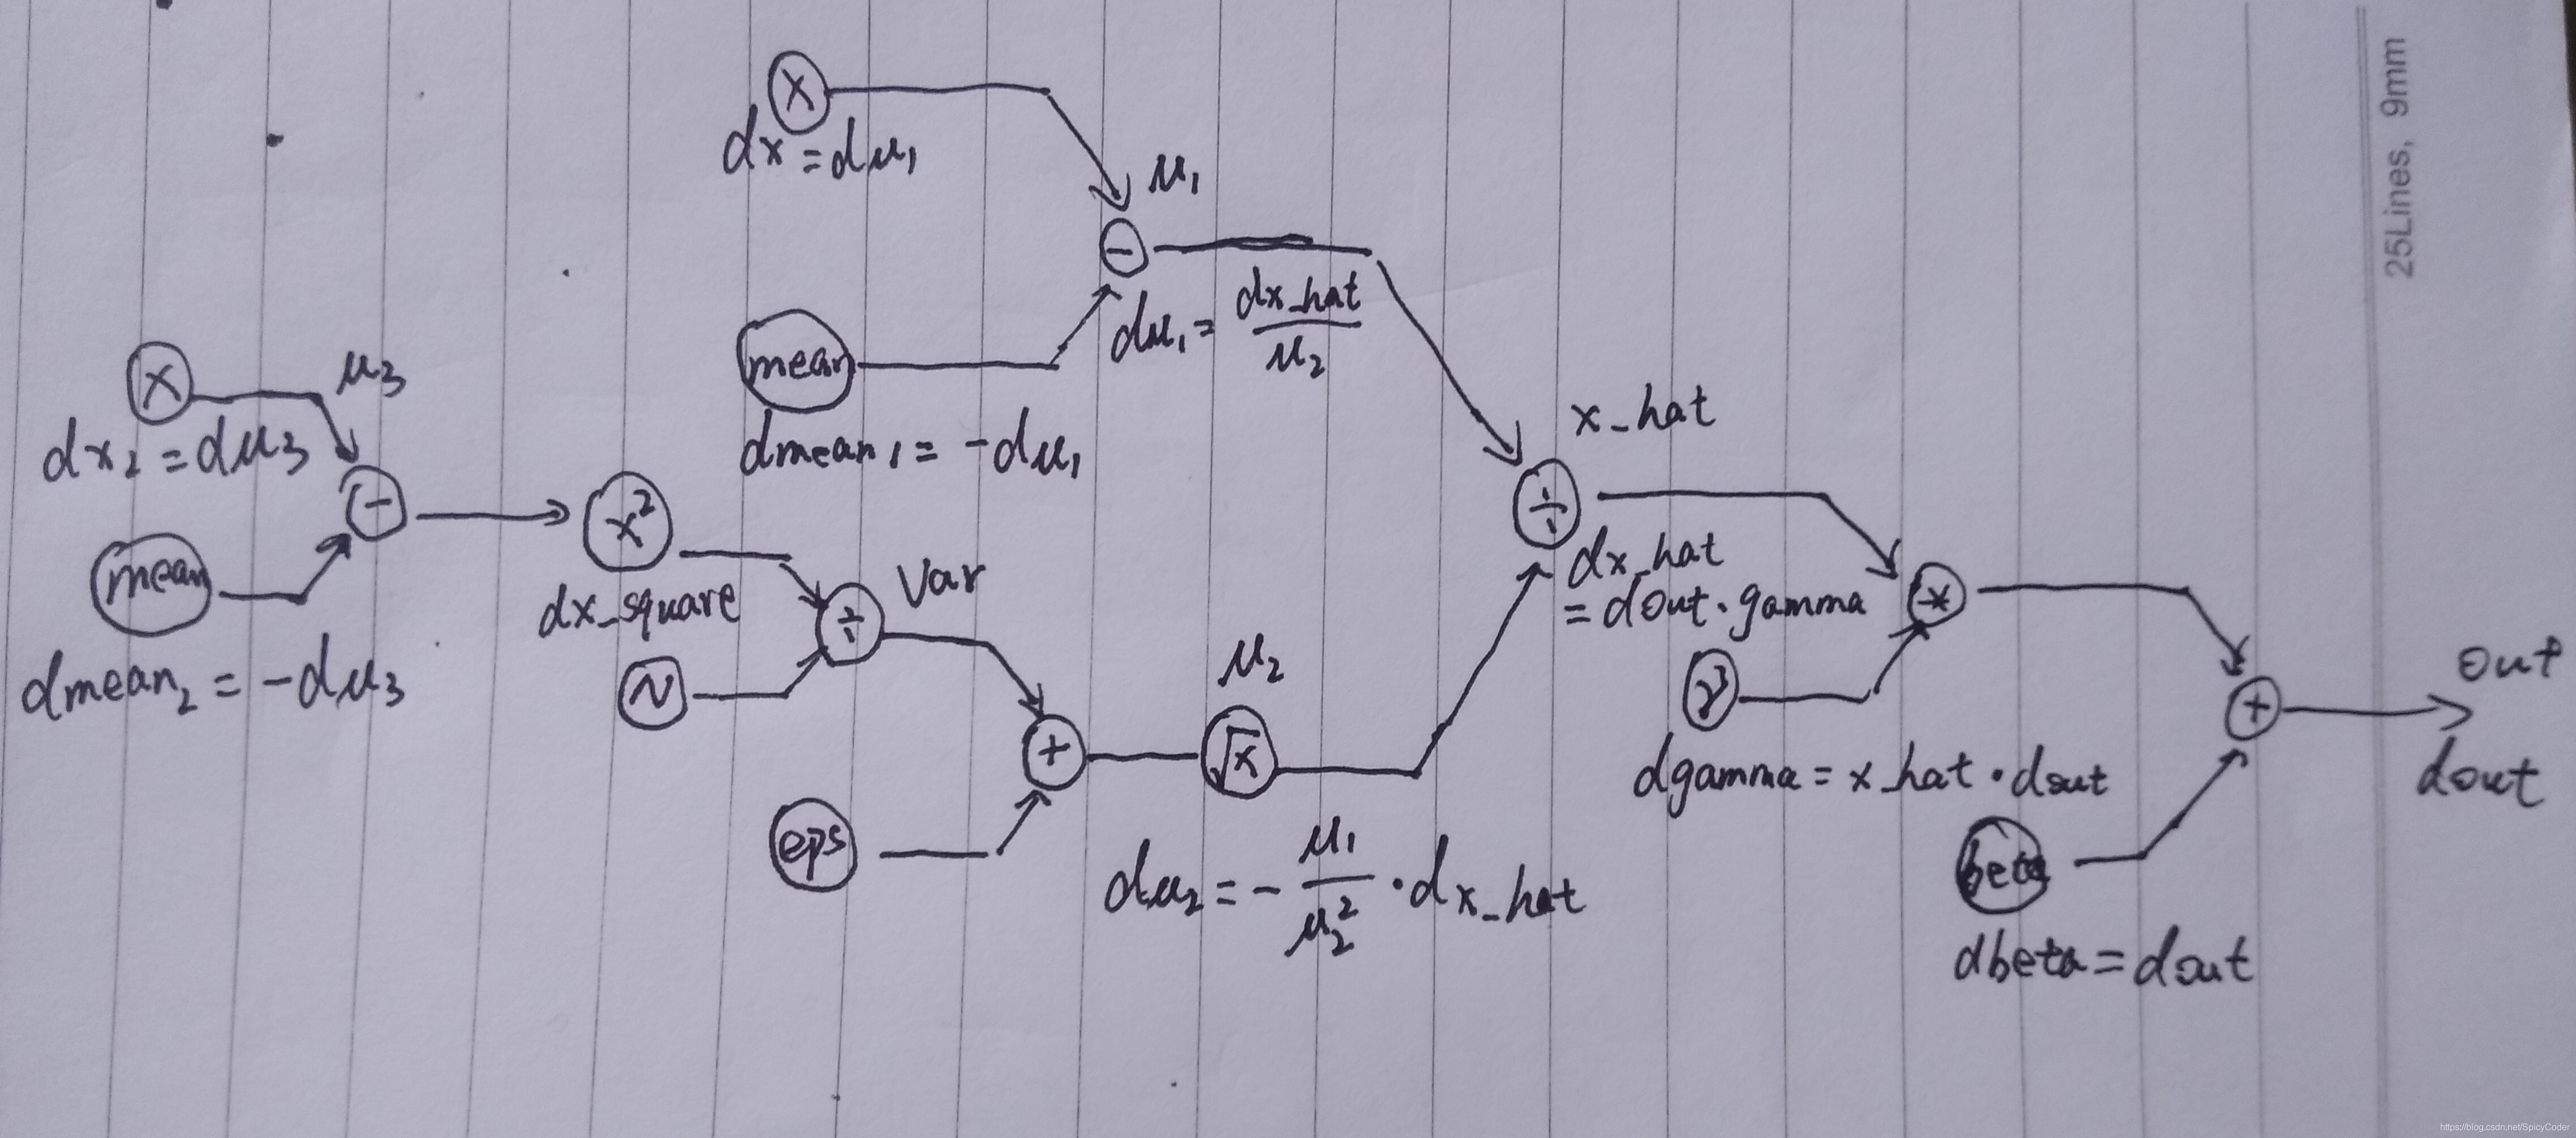 x
dx = dμ₁
μ₁
−
mean
dμ₁ = dx_hat / μ₂
dmean₁ = −dμ₁
x
μ₃
dx₂ = dμ₃
−
mean
dmean₂ = −dμ₃
x²
dx_square
÷
Var
N
+
eps
μ₂
√x
dμ₂ = − μ₁ / μ₂² · dx_hat
x_hat
÷
dx_hat
= dout · gamma
*
γ
dgamma = x_hat · dout
+
beta
dbeta = dout
out
dout
25Lines, 9mm
https://blog.csdn.net/SpicyCoder